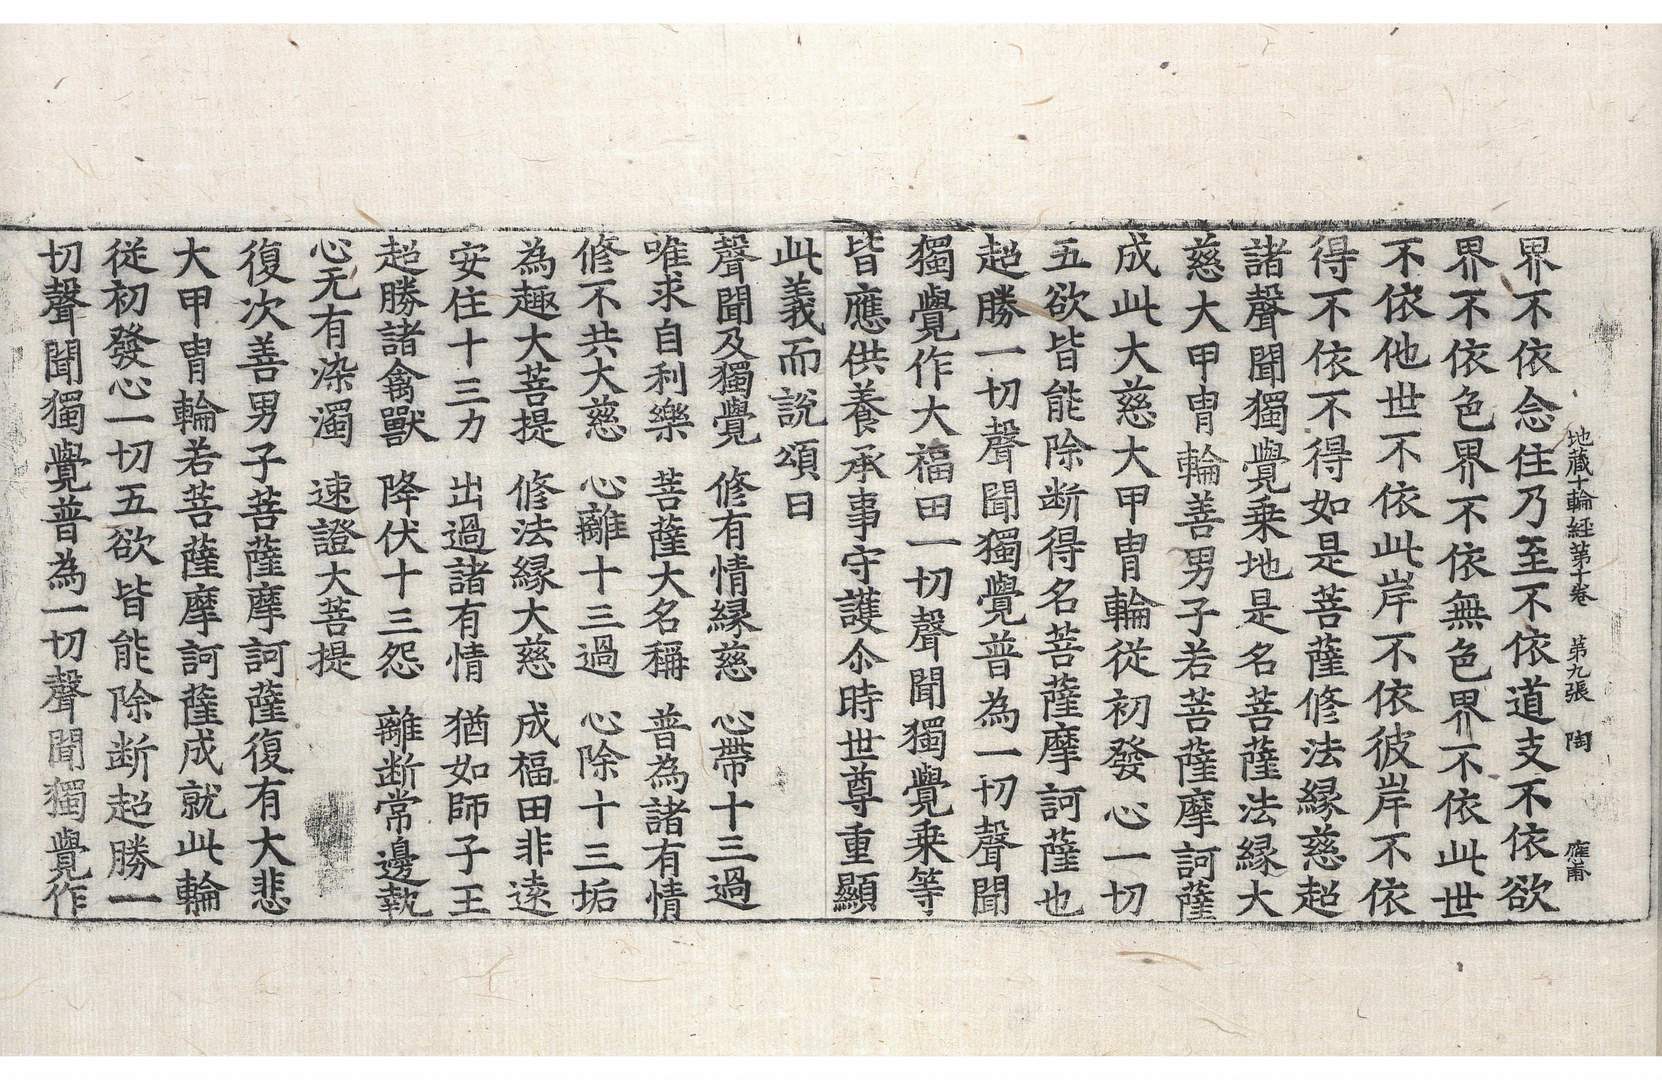 地藏十輪經第十卷 第九張 陶
界不依念住乃至不依道支不依欲
界不依色界不依無色界不依此世
不依他世不依此岸不依彼岸不依
得不依不得如是菩薩修法緣慈超
諸聲聞獨覺乘地是名菩薩法緣大
慈大甲冑輪善男子若菩薩摩訶薩
成此大慈大甲冑輪從初發心一切
五欲皆能除断得名菩薩摩訶薩也
超勝一切聲聞獨覺普為一切聲聞
獨覺作大福田一切聲聞獨覺乘等
皆應供養承事守護尒時世尊重顯
此義而說頌曰
聲聞及獨覺 修有情緣慈 心帶十三過
唯求自利樂 菩薩大名稱 普為諸有情
修不共大慈 心離十三過 心除十三垢
為趣大菩提 修法緣大慈 成福田非遠
安住十三力 出過諸有情 猶如師子王
超勝諸禽獸 降伏十三怨 離断常邊執
心无有染濁 速證大菩提
復次善男子菩薩摩訶薩復有大悲
大甲冑輪若菩薩摩訶薩成就此輪
從初發心一切五欲皆能除断超勝一
切聲聞獨覺普為一切聲聞獨覺作